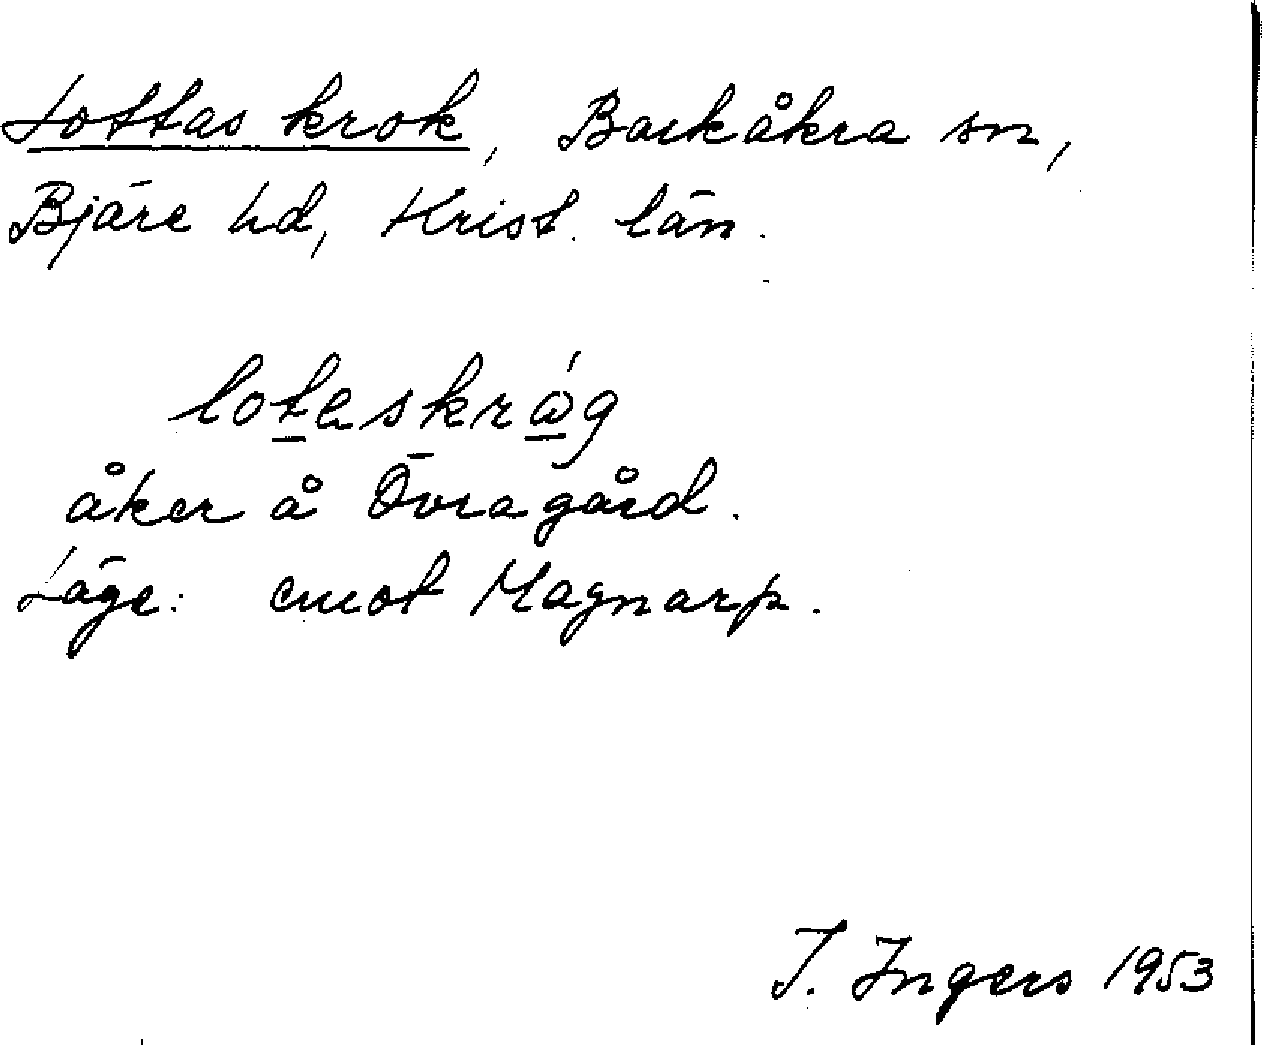 Lottas krok, Barkåkra sn,
Bjäre hd, Krist. län.
lotaskrǻg
åker å Övragård.
Läge: emot Magnarp.
I. Ingers 1953